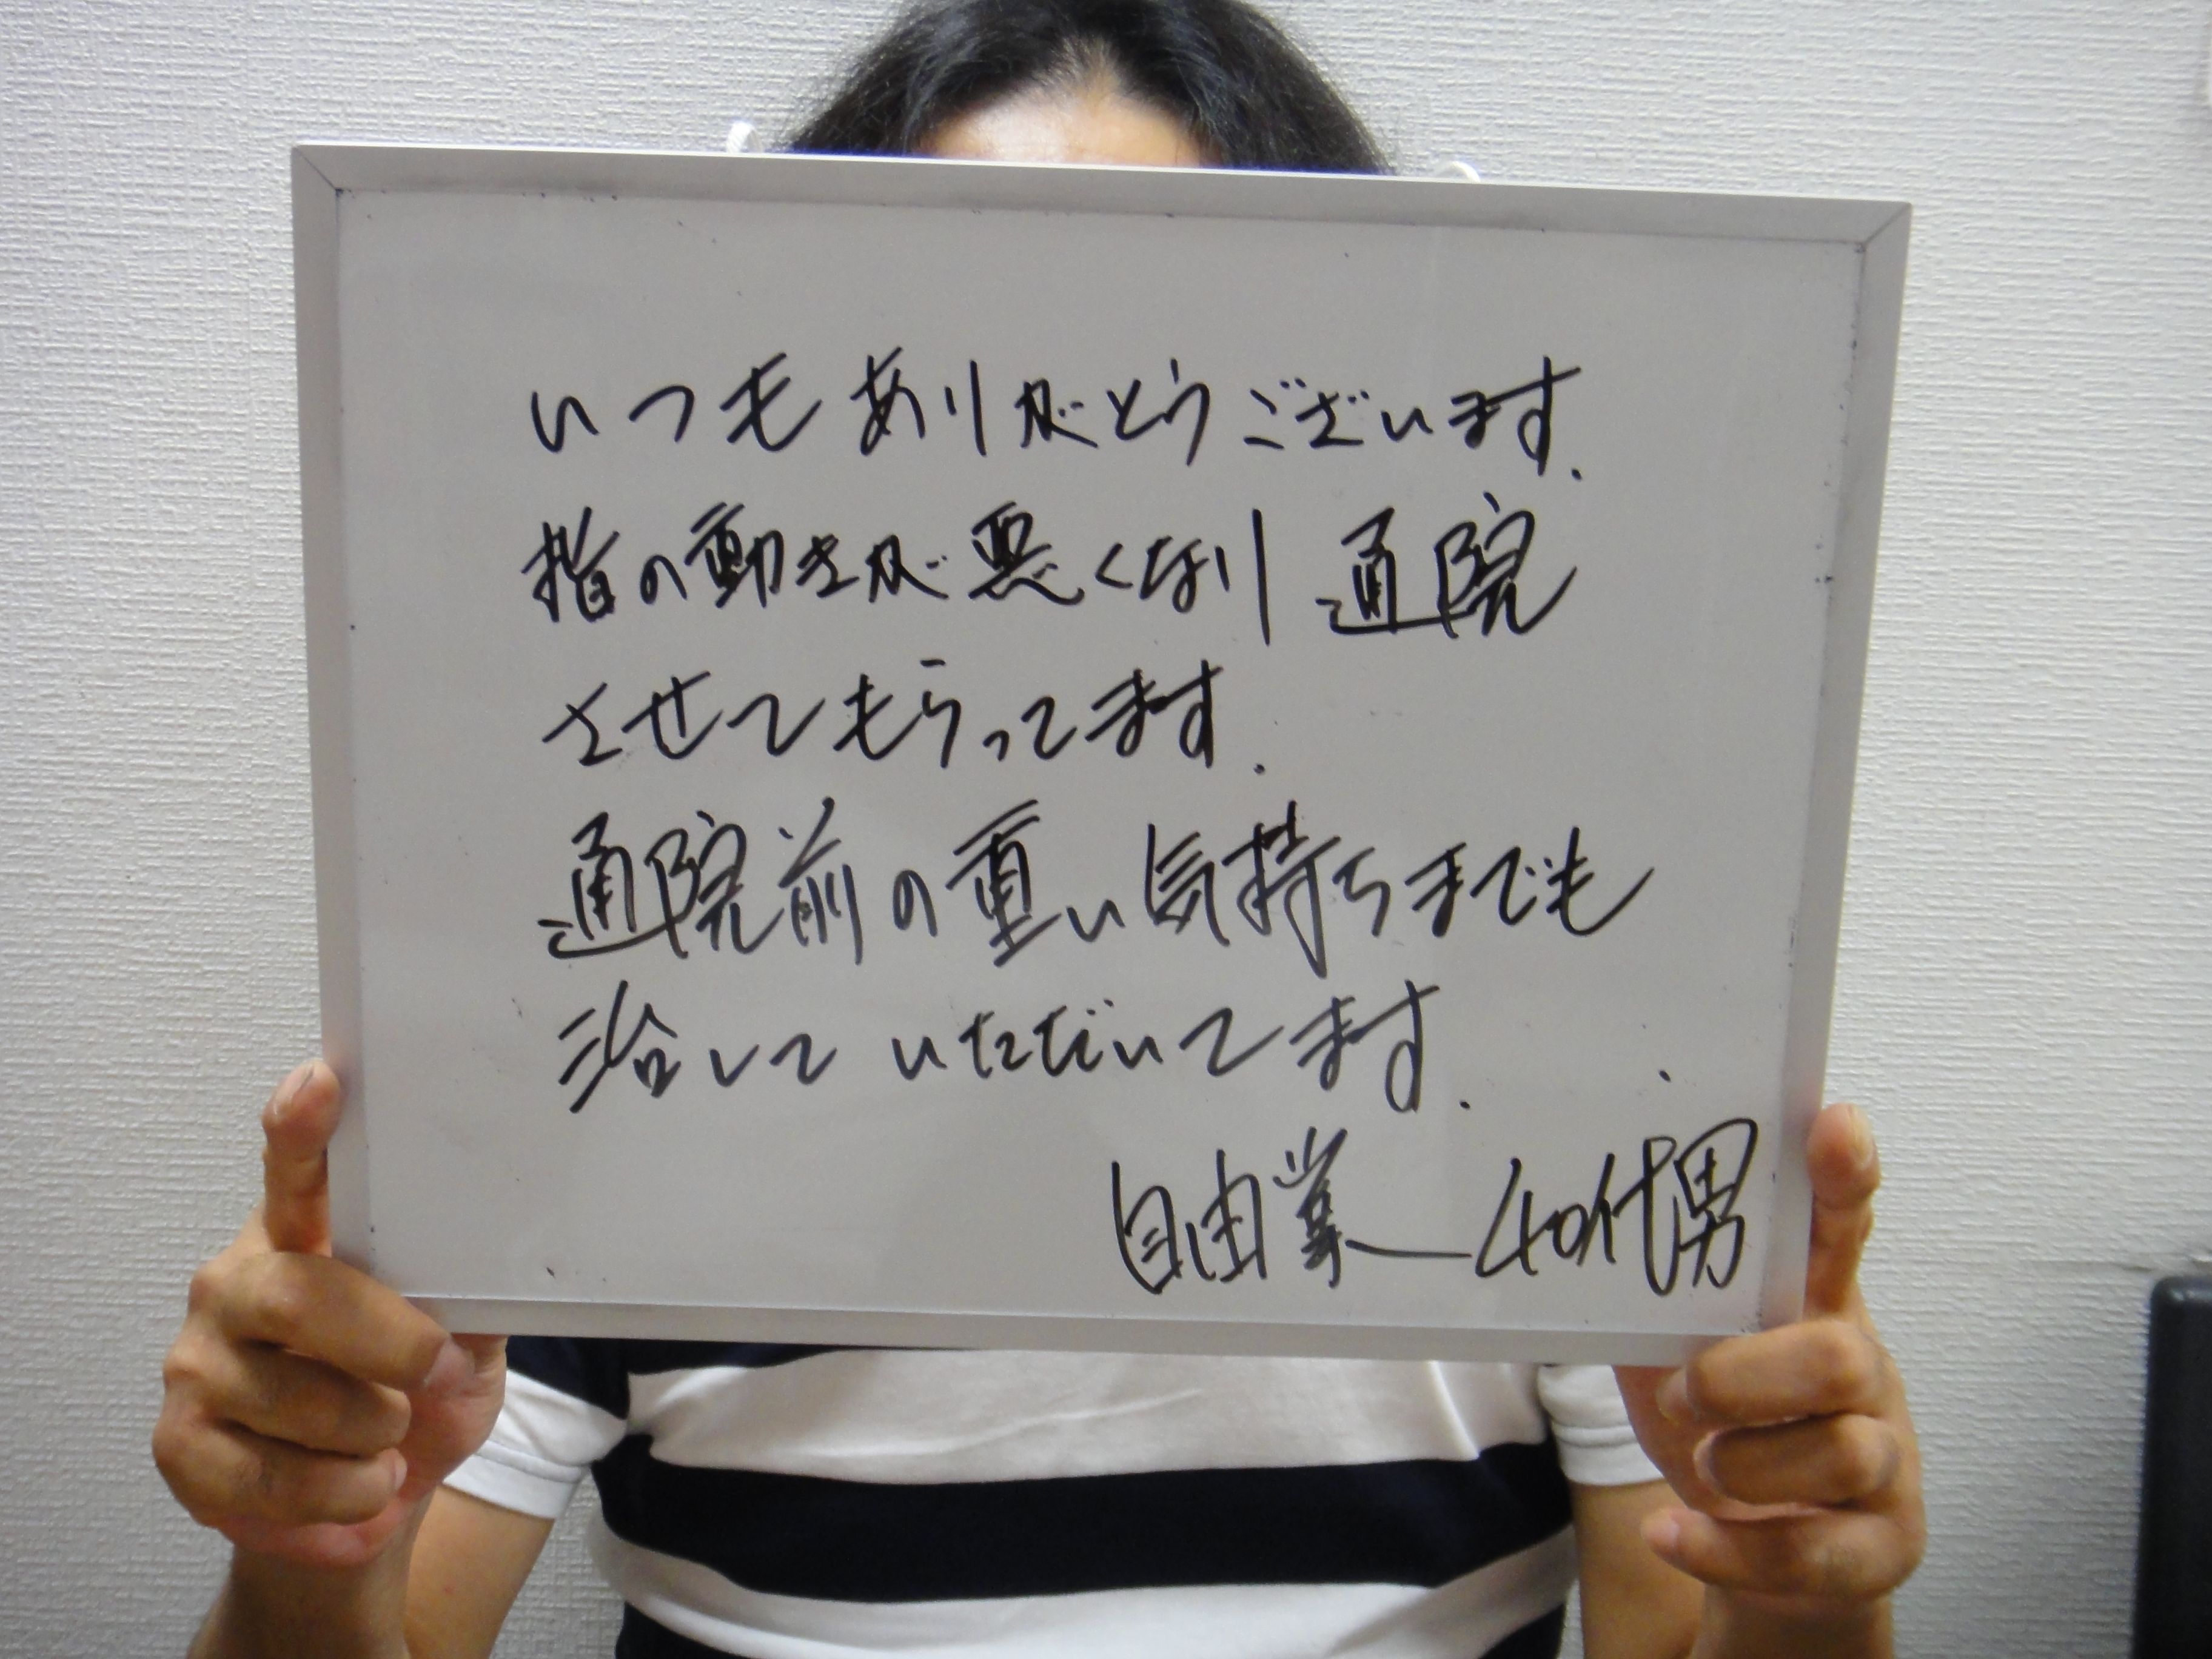 いつもありがとうございます.
指の動きが悪くなり通院
させてもらってます.
通院前の重い気持ちまでも
治していただいてます.
自由業ー40代男